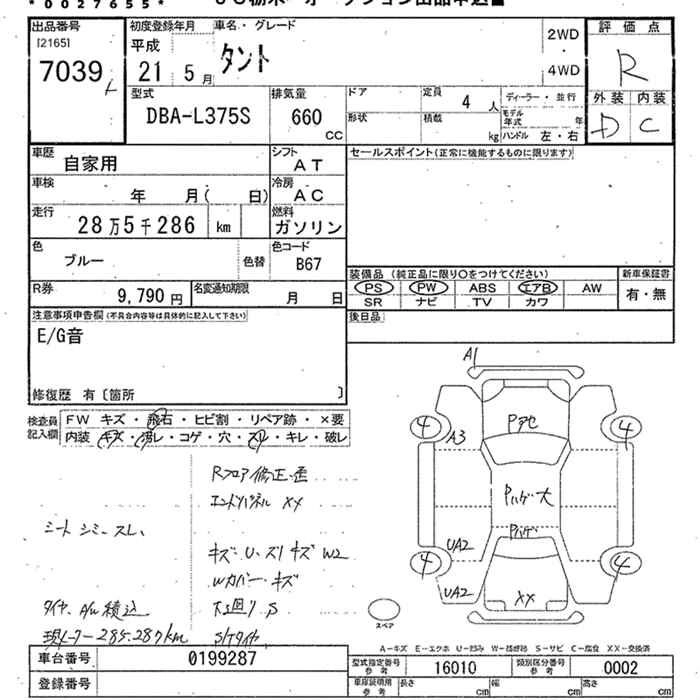 *0027655*
出品番号
[2165]
7039
初度登録年月
平成
21 5月
車名・グレード
タント
2WD
・
4WD
評価点
R
外装 内装
D C
型式
DBA-L375S
排気量
660
CC
ドア
形状
定員
4人
積載
kg
ディーラー・並行
モデル年式 年
ハンドル 左・右
車歴
自家用
シフト
AT
セールスポイント(正常に機能するものに限ります)
車検
年 月( 日)
冷房
AC
走行
28万5千286 km
燃料
ガソリン
色
ブルー
色替
色コード
B67
装備品 (純正品に限り○をつけてください)
PS PW ABS エアB AW
SR ナビ TV カワ
新車保証書
有・無
R券
9,790円
名変通知期限
月 日
後日品
注意事項申告欄(不具合内容等は具体的に記入して下さい)
E/G音
修復歴 有〔箇所 〕
検査員記入欄
FW キズ・飛石・ヒビ割・リペア跡・×要
内装 キズ・汚レ・コゲ・穴・スレ・キレ・破レ
Rフロア修正歪
エンドパネル XX
シート シミ スレ、
キズ U・スリ キズ W2
Wカバー キズ
タイヤ、A/W積込
下廻り S
現メーター285,287km
S/Tタイヤ
A1
Pアセ
4
4
A3
Pハゲ大
Pハゲ
UA2
4
4
UA2
XX
スペア
A-キズ E-エクボ U-凹み W-補修跡 S-サビ C-腐食 XX-交換済
車台番号
0199287
型式指定番号
参考
16010
類別区分番号
参考
0002
登録番号
車庫証明用
参考
長さ cm
幅 cm
高さ cm